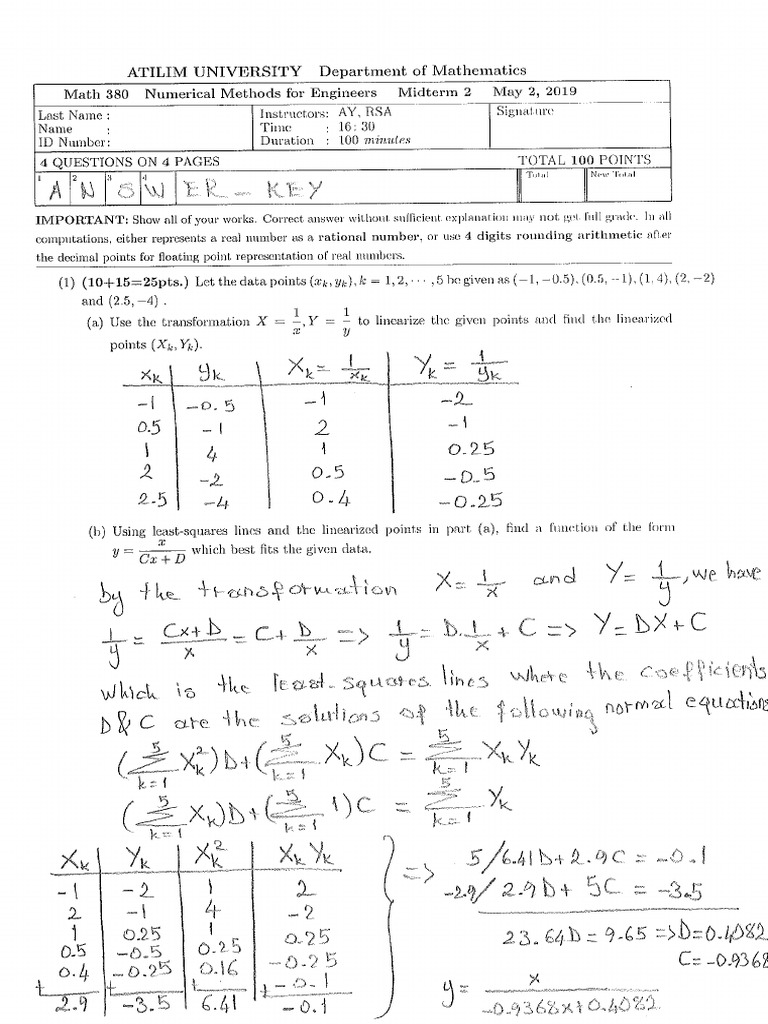 ATILIM UNIVERSITY Department of Mathematics
Math 380 Numerical Methods for Engineers Midterm 2 May 2, 2019
Last Name : Instructors: AY, RSA Signature
Name : Time : 16: 30
ID Number: Duration : 100 minutes
4 QUESTIONS ON 4 PAGES TOTAL 100 POINTS
1 2 3 4 Total New Total
A N S W ER – KEY
IMPORTANT: Show all of your works. Correct answer without sufficient explanation may not get full grade. In all
computations, either represents a real number as a rational number, or use 4 digits rounding arithmetic after
the decimal points for floating point representation of real numbers.
(1) (10+15=25pts.) Let the data points (xk, yk), k = 1, 2, ··· , 5 be given as (−1, −0.5), (0.5, −1), (1, 4), (2, −2)
and (2.5, −4) .
(a) Use the transformation X = 1/x, Y = 1/y to linearize the given points and find the linearized
points (Xk, Yk).
xk yk Xk = 1/xk Yk = 1/yk
-1 -0.5 -1 -2
0.5 -1 2 -1
1 4 1 0.25
2 -2 0.5 -0.5
2.5 -4 0.4 -0.25
(b) Using least-squares lines and the linearized points in part (a), find a function of the form
y = x/(Cx + D) which best fits the given data.
by the transformation X = 1/x and Y = 1/y, we have
1/y = (Cx+D)/x = C + D/x => 1/y = D.1/x + C => Y = DX + C
which is the least-squares lines where the coefficients
D&C are the solutions of the following normal equations
(5∑k=1 Xk²)D+(5∑k=1 Xk)C = 5∑k=1 Xk Yk
(5∑k=1 Xk)D+(5∑k=1 1)C = 5∑k=1 Yk
Xk Yk Xk² Xk Yk
-1 -2 1 2
2 -1 4 -2
1 0.25 1 0.25
0.5 -0.5 0.25 -0.25
0.4 -0.25 0.16 -0.1
+ + + +
2.9 -3.5 6.41 -0.1
=> 5/ 6.41D+2.9C = -0.1
-2.9/ 2.9D+ 5C = -3.5
23.64D = 9.65 => D=0.4082
C= -0.9368
y = x/(-0.9368x+0.4082)